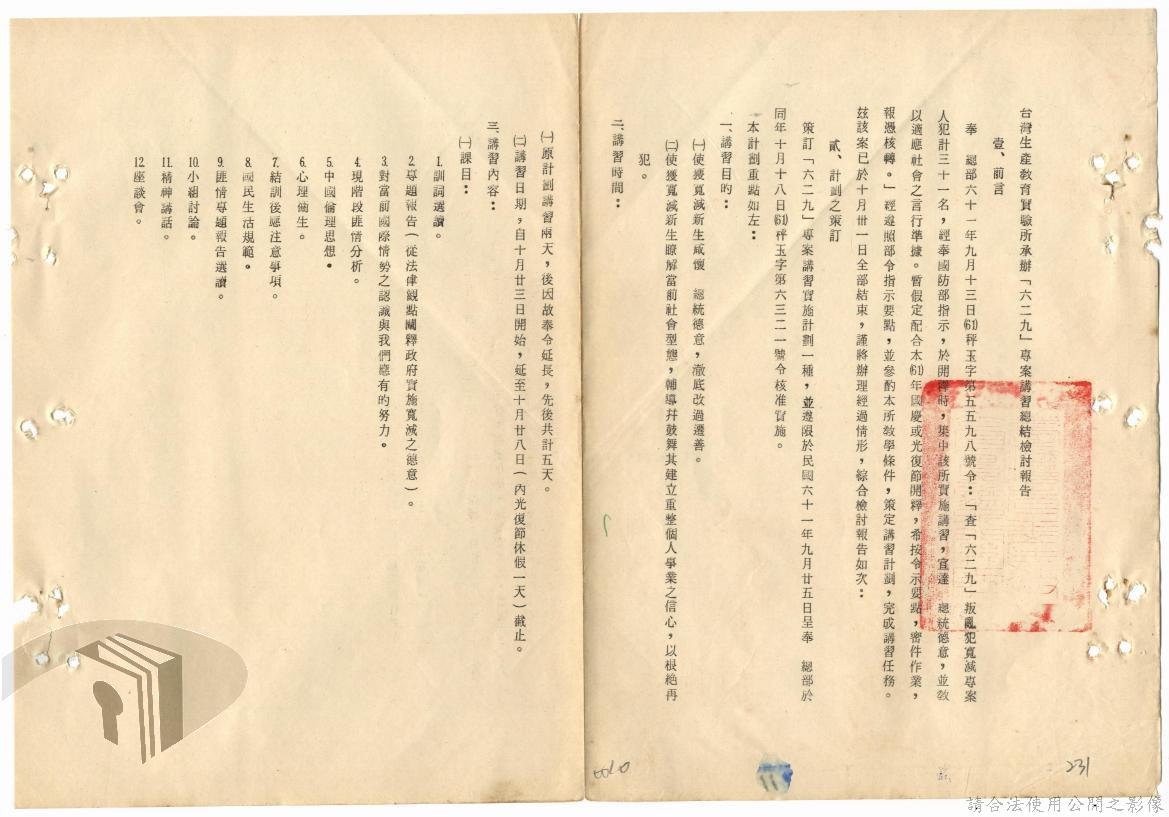 台灣生產教育實驗所承辦「六二九」專案講習總結檢討報告
壹、前言
奉 總部六十一年九月十三日(61)秤玉字第五五九八號令：「查「六二九」叛亂犯寬減專案
人犯計三十一名，經奉國防部指示，於開釋時，集中該所實施講習，宣達 總統德意，並敎
以適應社會之言行準據。暫假定配合本(61)年國慶或光復節開釋，希按令示要點，密件作業，
報憑核轉。」經遵照部令指示要點，並參酌本所敎學條件，策定講習計劃，完成講習任務。
茲該案已於十月卅一日全部結束，謹將辦理經過情形，綜合檢討報告如次：
貳、計劃之策訂
策訂「六二九」專案講習實施計劃一種，並遵限於民國六十一年九月廿五日呈奉 總部於
同年十月十八日(61)秤玉字第六三二一號令核准實施。
本計劃重點如左：
一、講習目的：
㈠使獲寬減新生咸懷 總統德意，澈底改過遷善。
㈡使獲寬減新生瞭解當前社會型態，輔導幷鼓舞其建立重整個人事業之信心，以根絕再
犯。
二、講習時間：
㈠原計劃講習兩天，後因故奉令延長，先後共計五天。
㈡講習日期，自十月廿三日開始，延至十月廿八日（內光復節休假一天）截止。
三、講習內容：
㈠課目：
1.訓詞選讀。
2.專題報告（從法律觀點闡釋政府實施寬減之德意）。
3.對當前國際情勢之認識與我們應有的努力。
4.現階段匪情分析。
5.中國倫理思想。
6.心理衛生。
7.結訓後應注意事項。
8.國民生活規範。
9.匪情專題報告選讀。
10.小組討論。
11.精神講話。
12.座談會。
231
請合法使用公開之影像